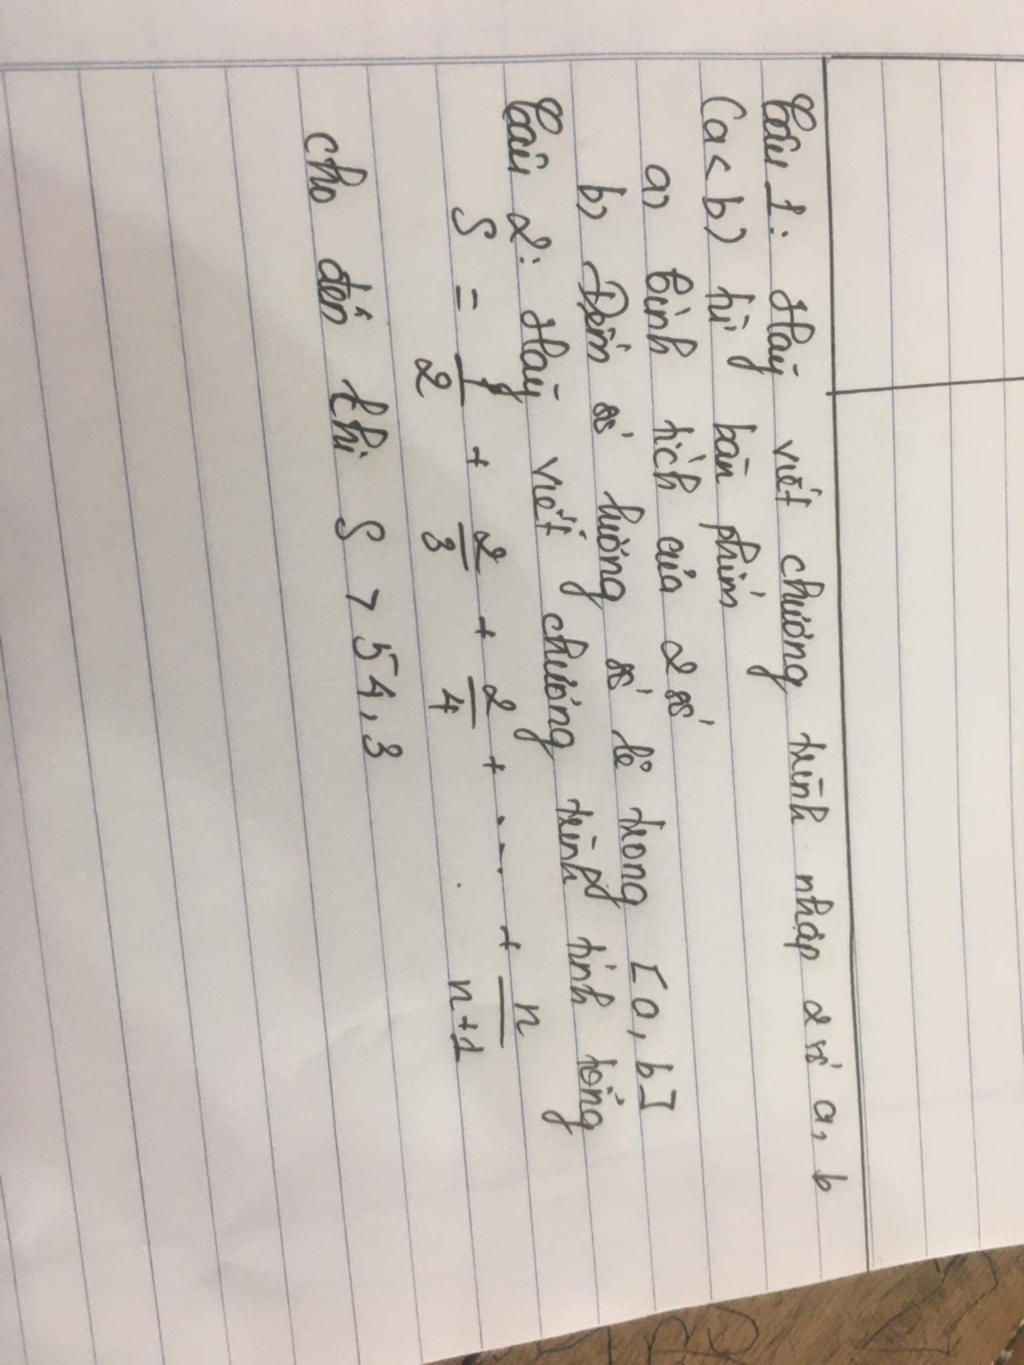 Câu 1: Hãy viết chương trình nhập 2 số a, b
(a < b) từ bàn phím
a, Tính tích của 2 số
b, Đếm số lượng số lẻ trong [a, b]
Câu 2: Hãy viết chương trình tính tổng
S = 1/2 + 2/3 + 2/4 + ... + n/n+1
cho đến khi S > 54,3